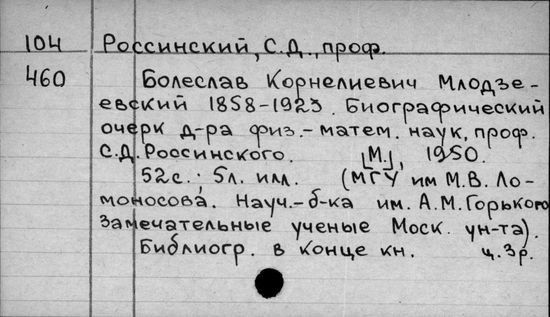 104 Россинский, С.Д., проф.
460 Болеслав Корнелиевич Млодзе-
евский 1858-1923. Биографический
очерк д-ра физ.-матем. наук, проф.
С.Д. Россинского. [М.], 1950.
52с.; 5л. илл. (МГУ им М.В. Ло-
моносова. Науч.-б-ка им. А.М. Горького
Замечательные ученые Моск. ун-та).
Библиогр. в конце кн. ц. 3р.